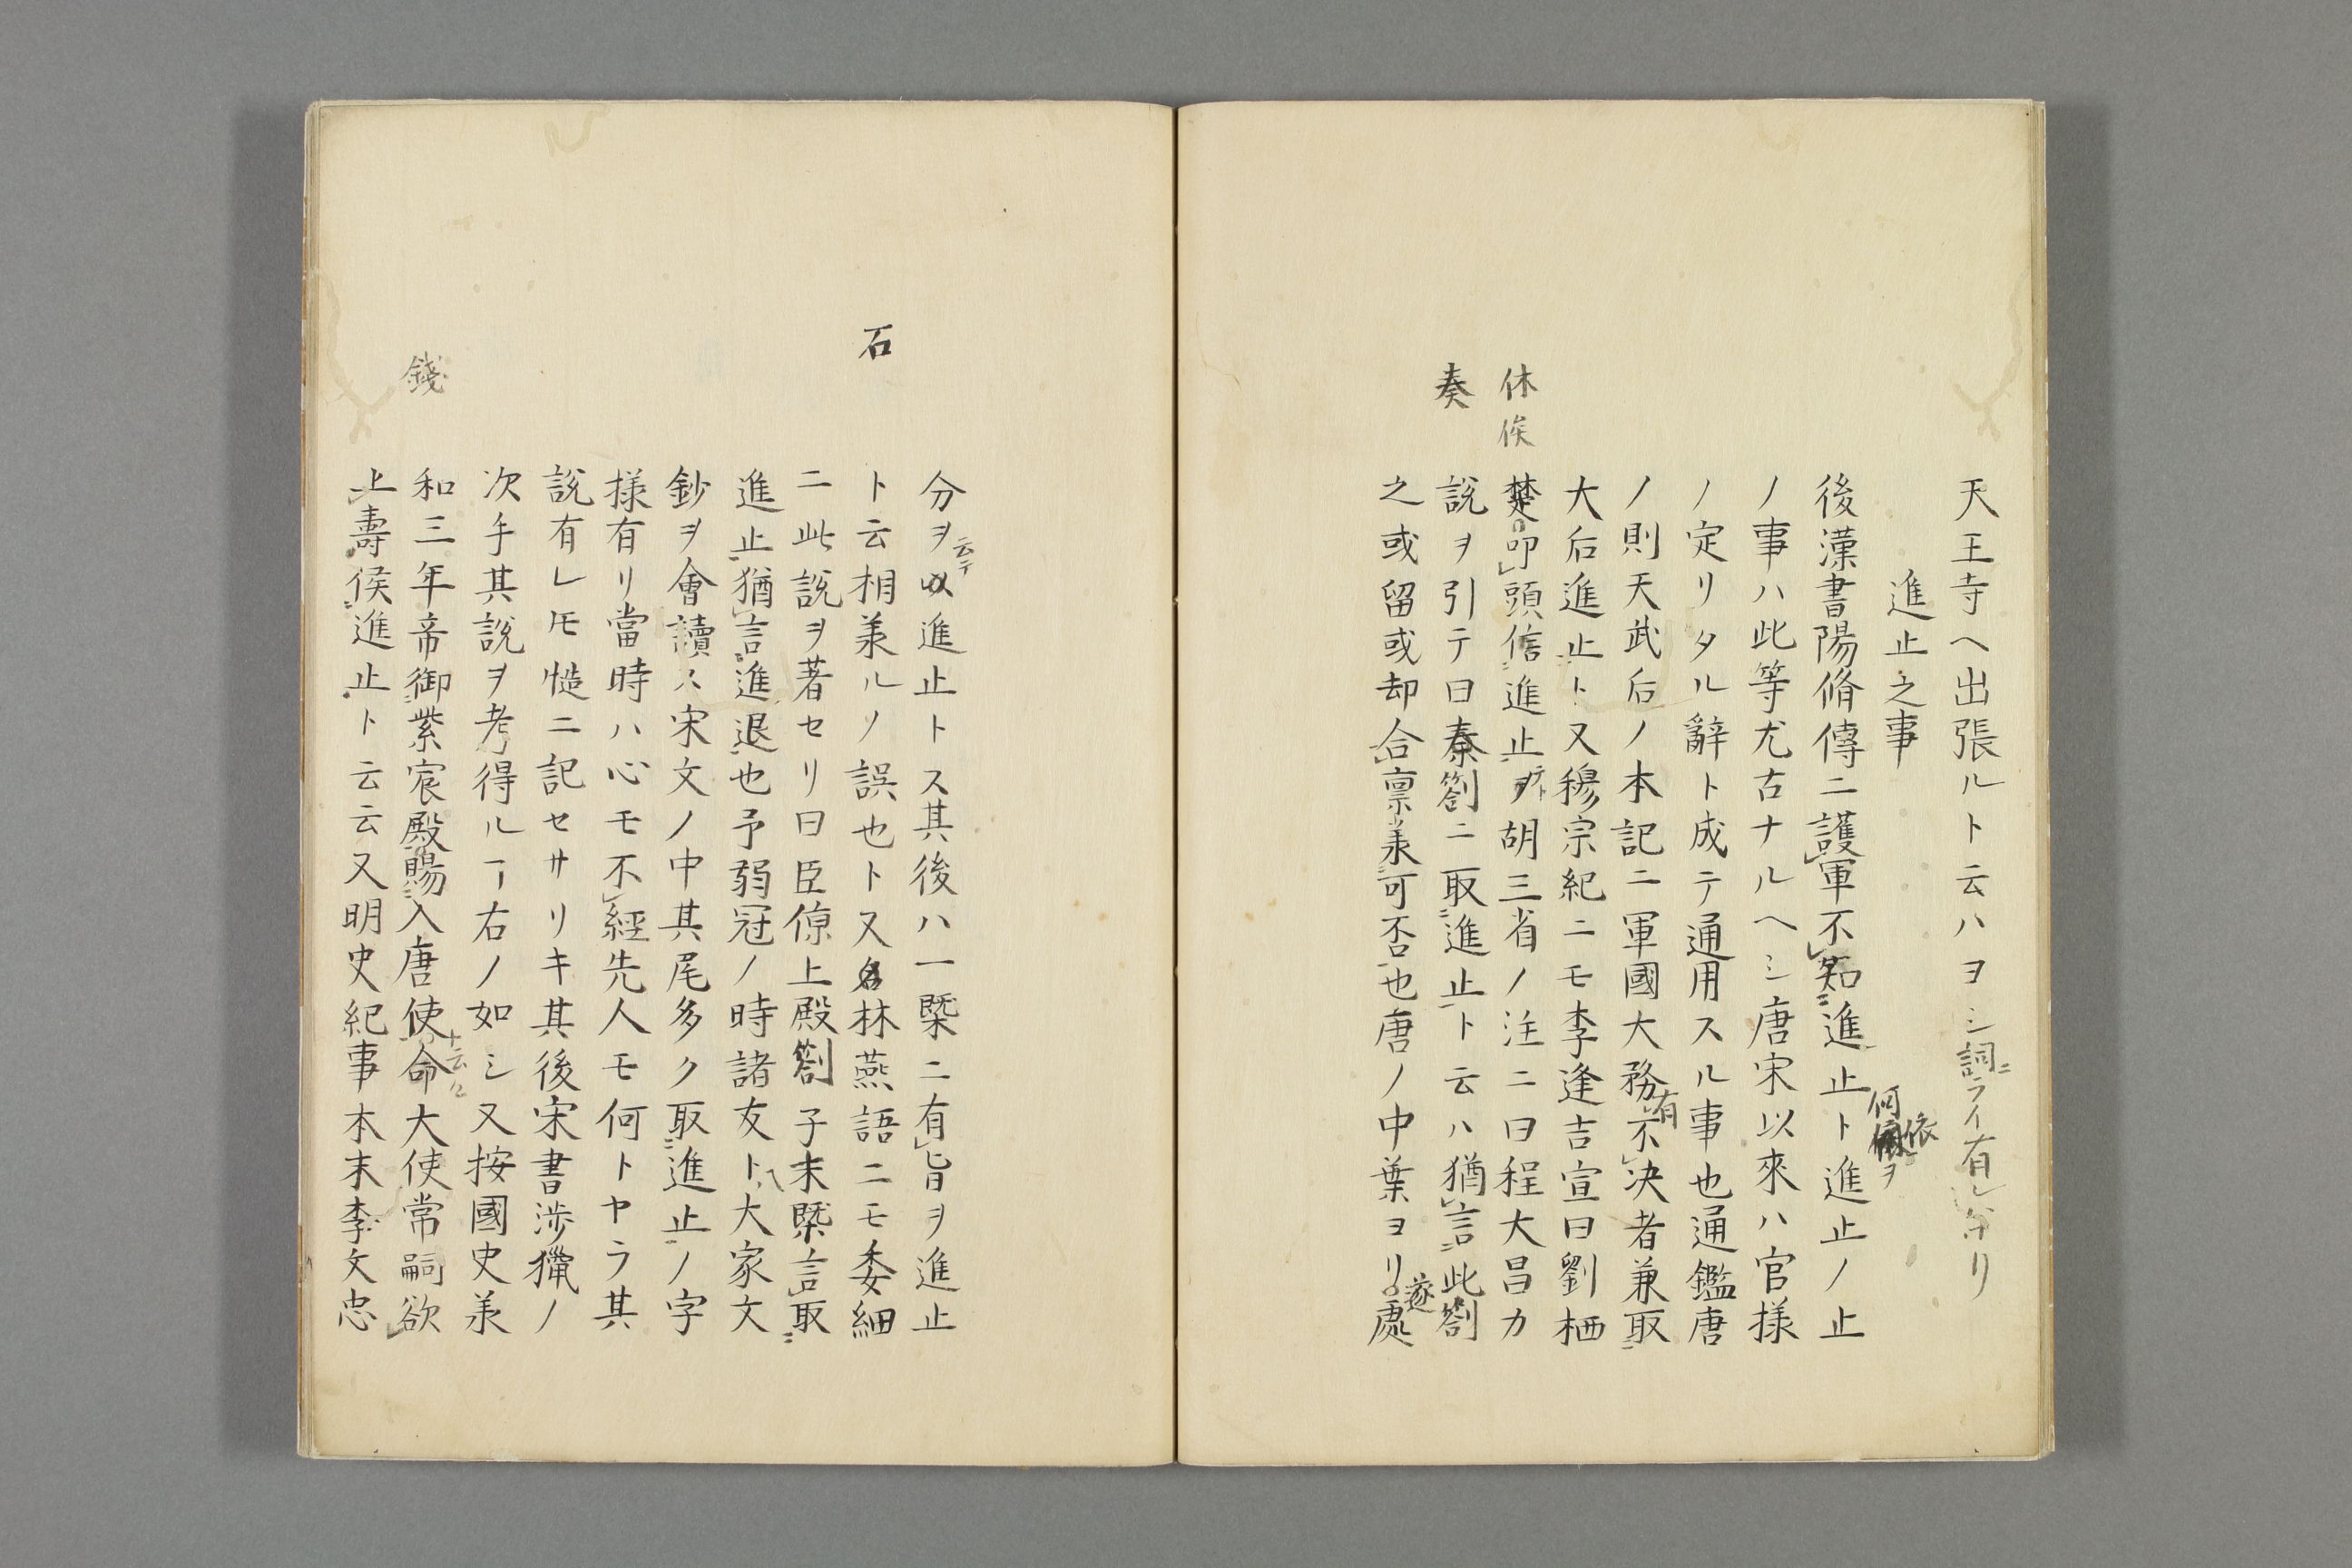 天王寺ヘ出張ルト云ハヨシ詞ニライ有レナリ
進止之事
何依ヲ
後漢書陽脩傳ニ護軍不知進止ト進止ノ止
ノ事ハ此等尤古ナルヘシ唐宋以來ハ官樣
ノ定リタル辭ト成テ通用スル事也通鑑唐
ノ則天武后ノ本記ニ軍國大務有不決者兼取
大后進止ト又穆宗紀ニモ李逢吉宣曰劉栖
休俟
楚叩頭信進止ヲト胡三省ノ注ニ曰程大昌カ
奏
說ヲ引テ曰秦劄ニ取進止ト云ハ猶言此劄
之或留或却合禀羕可否也唐ノ中葉ヨリ遂處
分ヲ云テ以進止トス其後ハ一槩ニ有旨ヲ進止
石
ト云相羕ルノ誤也ト又名林燕語ニモ委細
ニ此說ヲ著セリ曰臣僚上殿劄子末槩言取
進止猶言進退也予弱冠ノ時諸友ト八大家文
鈔ヲ會讀ス宋文ノ中其尾多ク取進止ノ字
樣有リ當時ハ心モ不經先人モ何トヤラ其
說有レモ慥ニ記セサリキ其後宋書涉獵ノ
次手其說ヲ考得ルヿ右ノ如シ又按國史羕
錢
和三年帝御紫宸殿賜入唐使命大使常嗣欲
十云々
上壽俟進止ト云云又明史紀事本末李文忠